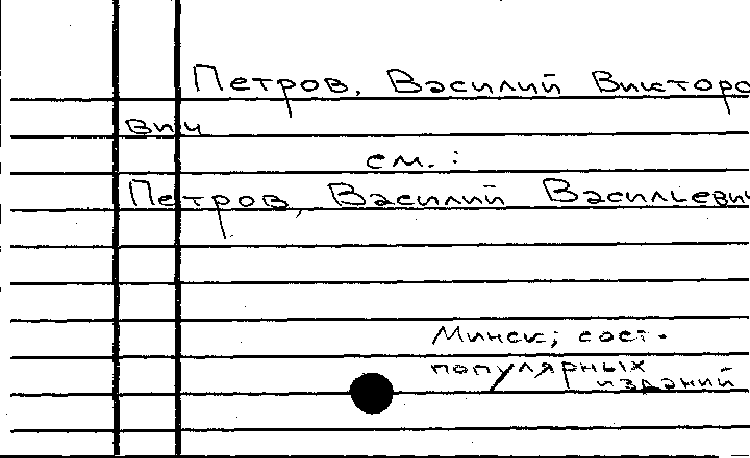 Петров, Василий Викторо
вич
см. :
Петров, Василий Васильевич
Минск; сост.
популярных
изданий